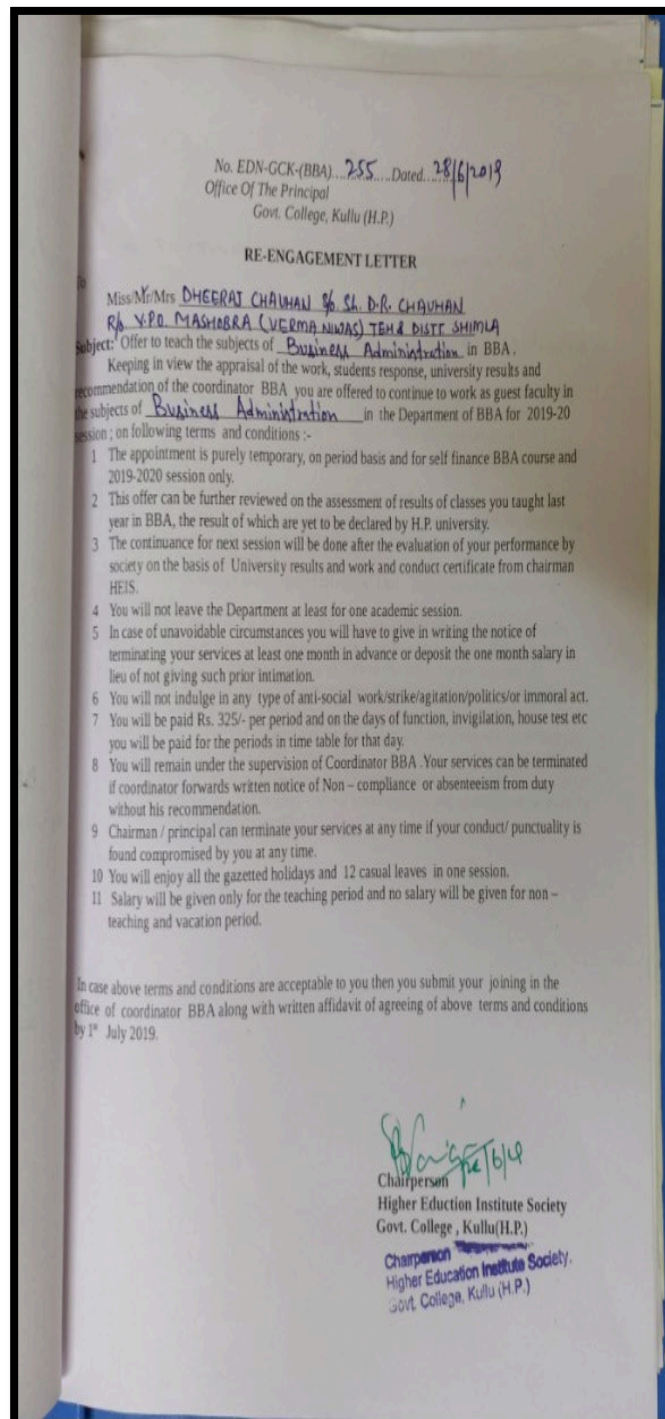 No. EDN-GCK-(BBA)....255....Dated....28/6/2019
Office Of The Principal
Govt. College, Kullu (H.P.)
RE-ENGAGEMENT LETTER
To
Miss/Mr/Mrs DHEERAJ CHAUHAN S/o. Sh. D.R. CHAUHAN
R/o V.P.O. MASHOBRA (VERMA NIWAS) TEH & DISTT SHIMLA
Subject: Offer to teach the subjects of Business Administration in BBA.
Keeping in view the appraisal of the work, students response, university results and
recommendation of the coordinator BBA you are offered to continue to work as guest faculty in
the subjects of Business Administration in the Department of BBA for 2019-20
session ; on following terms and conditions :-
1 The appointment is purely temporary, on period basis and for self finance BBA course and
2019-2020 session only.
2 This offer can be further reviewed on the assessment of results of classes you taught last
year in BBA, the result of which are yet to be declared by H.P. university.
3 The continuance for next session will be done after the evaluation of your performance by
society on the basis of University results and work and conduct certificate from chairman
HEIS.
4 You will not leave the Department at least for one academic session.
5 In case of unavoidable circumstances you will have to give in writing the notice of
terminating your services at least one month in advance or deposit the one month salary in
lieu of not giving such prior intimation.
6 You will not indulge in any type of anti-social work/strike/agitation/politics/or immoral act.
7 You will be paid Rs. 325/- per period and on the days of function, invigilation, house test etc
you will be paid for the periods in time table for that day.
8 You will remain under the supervision of Coordinator BBA .Your services can be terminated
if coordinator forwards written notice of Non – compliance or absenteeism from duty
without his recommendation.
9 Chairman / principal can terminate your services at any time if your conduct/ punctuality is
found compromised by you at any time.
10 You will enjoy all the gazetted holidays and 12 casual leaves in one session.
11 Salary will be given only for the teaching period and no salary will be given for non –
teaching and vacation period.
In case above terms and conditions are acceptable to you then you submit your joining in the
office of coordinator BBA along with written affidavit of agreeing of above terms and conditions
by 1st July 2019.
Chairperson
Higher Eduction Institute Society
Govt. College , Kullu(H.P.)
Chairperson
Higher Education Institute Society,
Govt. College, Kullu (H.P.)